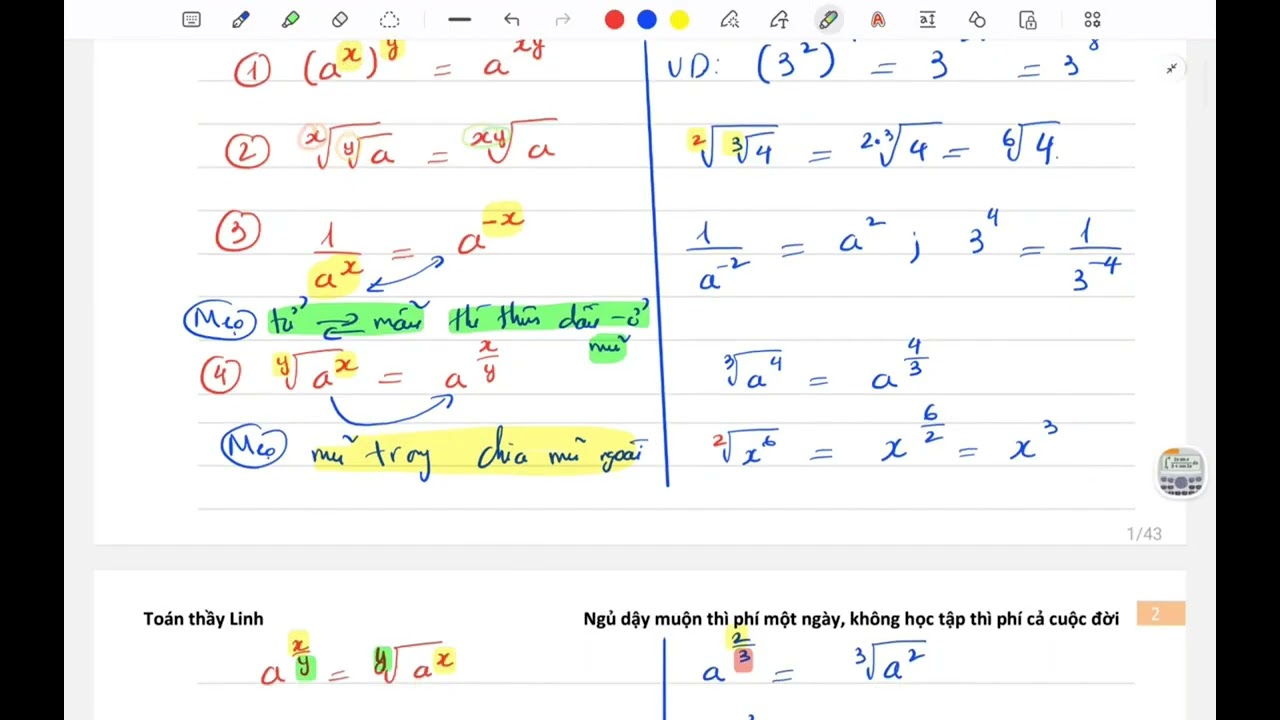 ① (a^x)^y = a^{xy} VD: (3^2) = 3 = 3^8
② \sqrt[x]{\sqrt[y]{a}} = \sqrt[xy]{a} \sqrt[2]{\sqrt[3]{4}} = \sqrt[2.3]{4} = \sqrt[6]{4}.
③ \frac{1}{a^x} = a^{-x} \frac{1}{a^{-2}} = a^2 ; 3^4 = \frac{1}{3^{-4}}
Mẹo tử ⇌ mẫu thì thêm dấu - ở mũ
④ \sqrt[y]{a^x} = a^{\frac{x}{y}} \sqrt[3]{a^4} = a^{\frac{4}{3}}
Mẹo mũ trong chia mũ ngoài \sqrt[2]{x^6} = x^{\frac{6}{2}} = x^3
1/43
Toán thầy Linh Ngủ dậy muộn thì phí một ngày, không học tập thì phí cả cuộc đời 2
a^{\frac{x}{y}} = \sqrt[y]{a^x} a^{\frac{2}{3}} = \sqrt[3]{a^2}